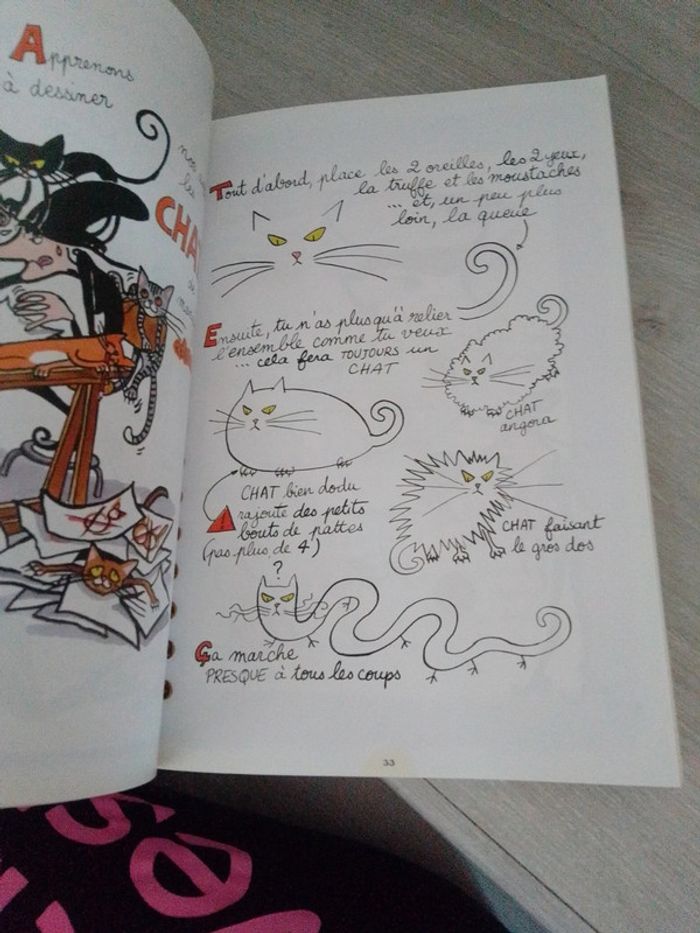 Apprenons
à dessiner
CHA
Tout d'abord, place les 2 oreilles, les 2 yeux,
la truffe et les moustaches
... et, un peu plus
loin, la queue
Ensuite, tu n'as plus qu'à relier
l'ensemble comme tu veux
... cela fera TOUJOURS un
CHAT
CHAT
angora
CHAT bien dodu
rajoute des petits
bouts de pattes
(pas plus de 4)
!
CHAT faisant
le gros dos
?
Ça marche
PRESQUE à tous les coups
33